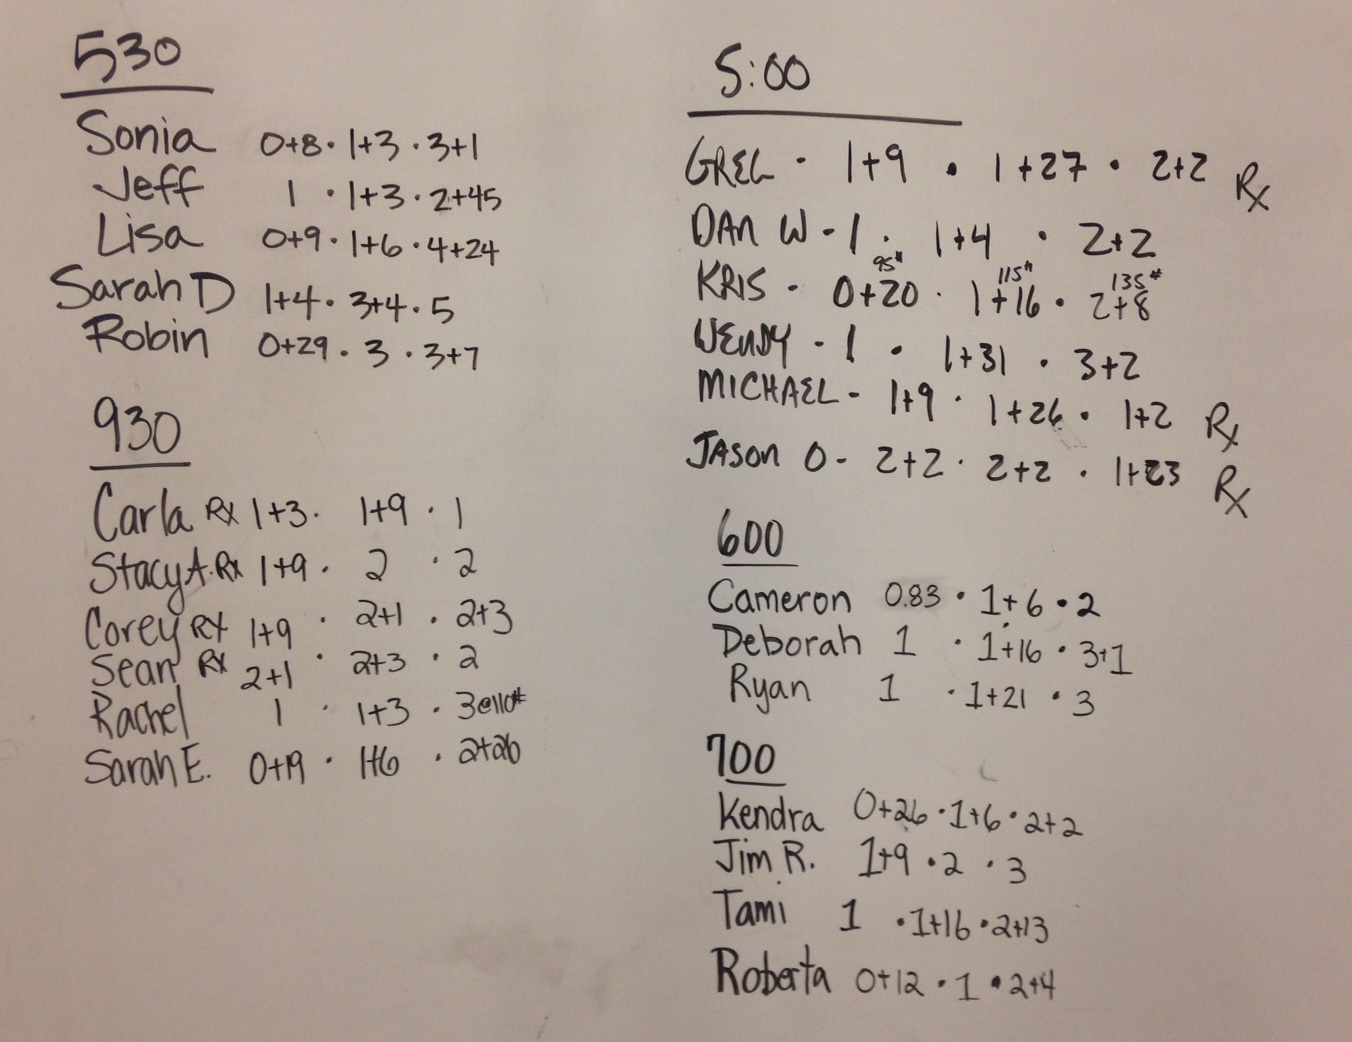 530
Sonia 0+8 · 1+3 · 3+1
Jeff 1 · 1+3 · 2+45
Lisa 0+9 · 1+6 · 4+24
Sarah D 1+4 · 3+4 · 5
Robin 0+29 · 3 · 3+7
930
Carla Rx 1+3 · 1+9 · 1
Stacy A. Rx 1+9 · 2 · 2
Corey RX 1+9 · 2+1 · 2+3
Sean Rx 2+1 · 2+3 · 2
Rachel 1 · 1+3 · 3@110#
Sarah E. 0+19 · 1+6 · 2+26
5:00
GREG · 1+9 · 1+27 · 2+2 Rx
DAN W - 1 · 1+4 · 2+2
95# 115# 135#
KRIS - 0+20 · 1+16 · 2+8
WENDY - 1 · 1+31 · 3+2
MICHAEL - 1+9 · 1+26 · 1+2 Rx
JASON O - 2+2 · 2+2 · 1+23 Rx
600
Cameron 0.83 · 1+6 · 2
Deborah 1 · 1+16 · 3+1
Ryan 1 · 1+21 · 3
700
Kendra 0+26 · 1+6 · 2+2
Jim R. 1+9 · 2 · 3
Tami 1 · 1+16 · 2+13
Roberta 0+12 · 1 · 2+4